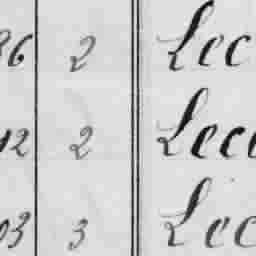 86 2 Lec
12 2 Lece
03 3 Lec